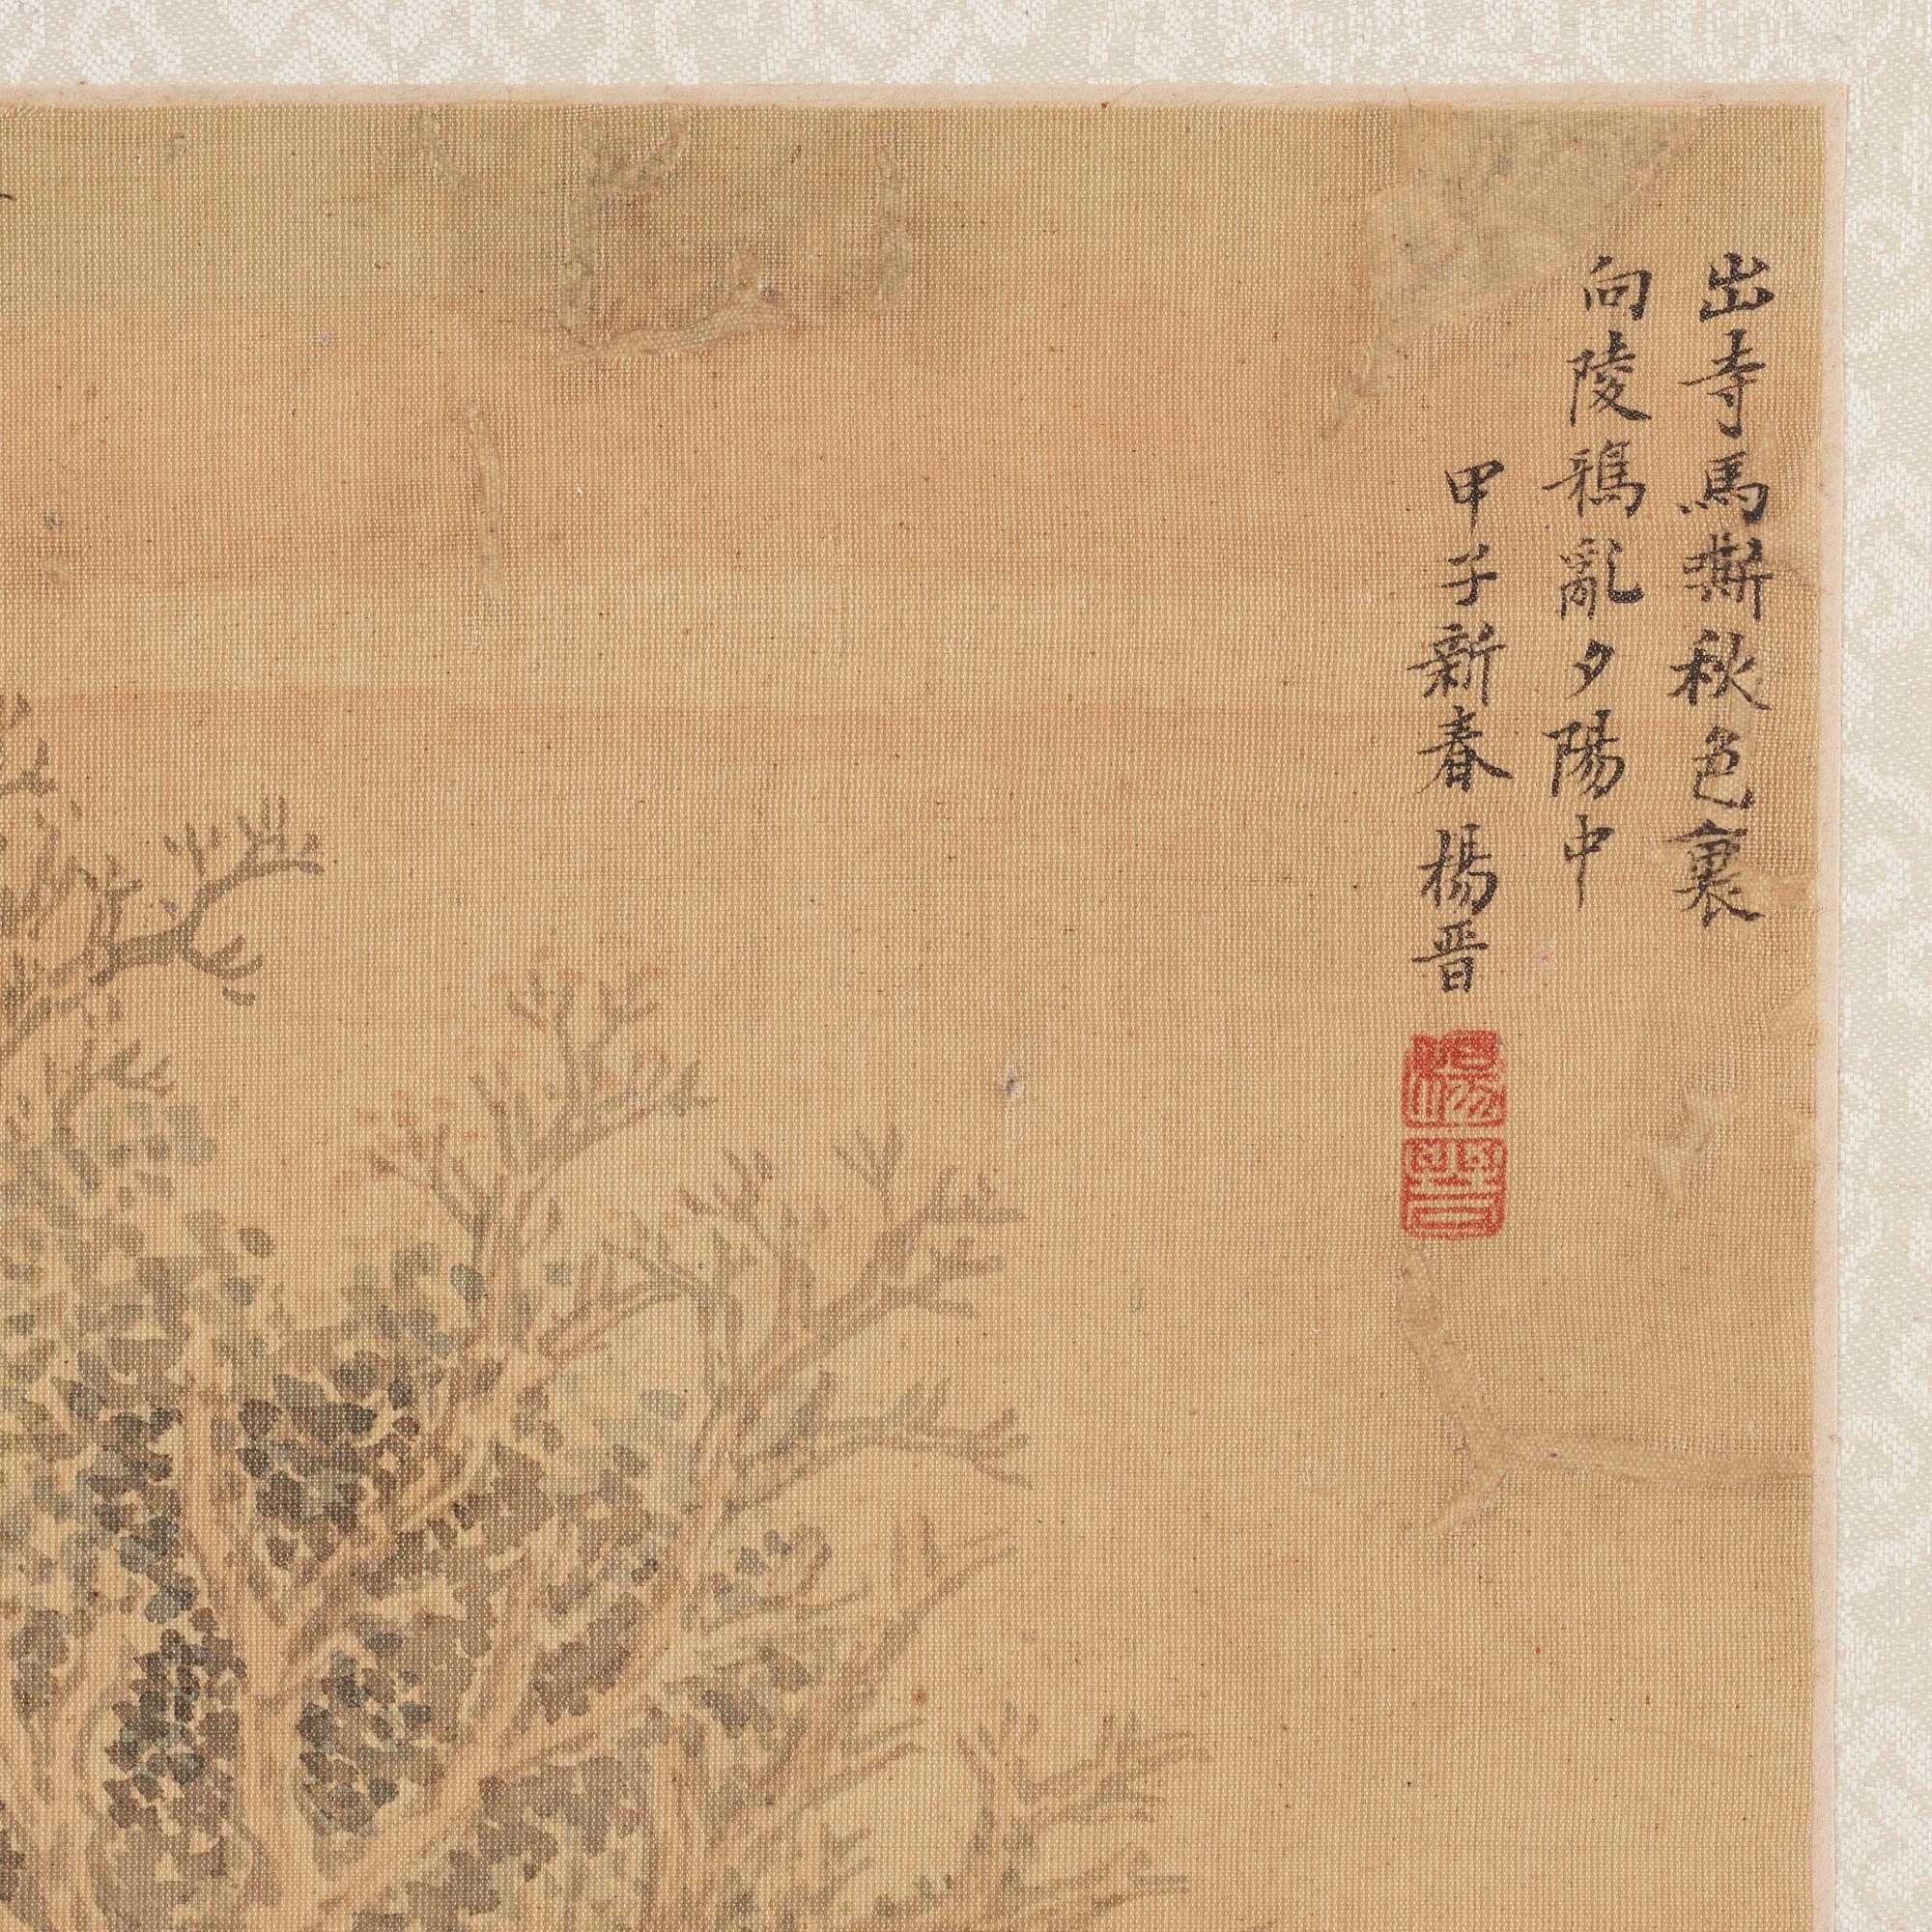 出寺馬嘶秋色裏
向陵鴉亂夕陽中
甲子新春 楊晋
楊
晉